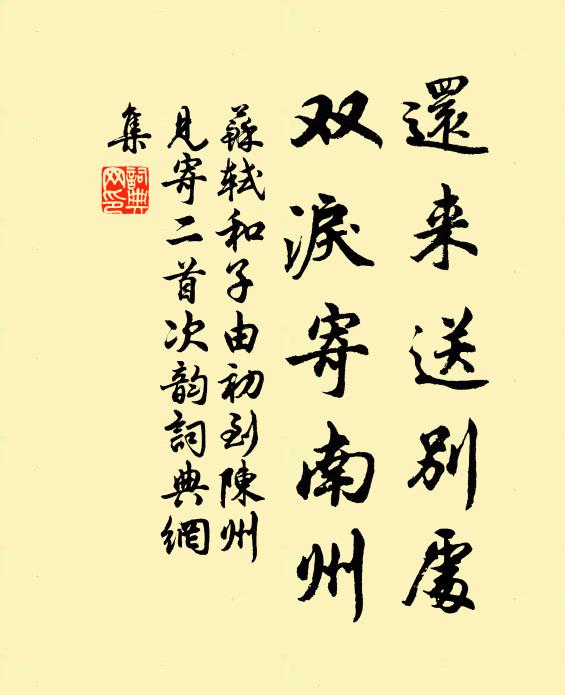 還来送别處
双淚寄南州
蘇轼和子由初到陳州
見寄二首次韵詞典網
集
詞典
网印